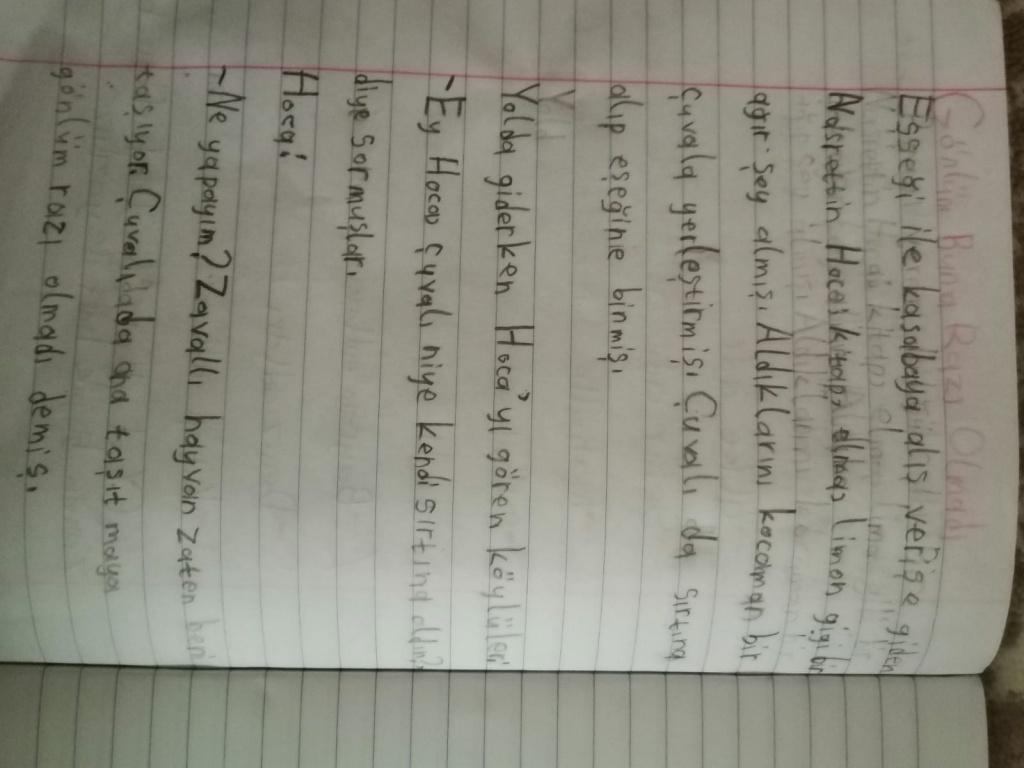 Gönlüm Buna Razı Olmadı
Eşşeği ile kasabaya alış verişe giden
Nasrettin Hoca kitap elma limon gigibi
ağır şey almış. Aldıklarını kocaman bir
çuvala yerleştirmiş. Çuvalı da sırtına
alıp eşeğine binmiş.
Yolda giderken Hoca'yı gören köylüler
- Ey Hoca çuvalı niye kendi sırtına aldın?
diye sormuşlar.
Hoca:
- Ne yapayım? Zavallı hayvan zaten beni
taşıyor. Çuvalıda ona taşıt maya
gönlüm razı olmadı demiş.